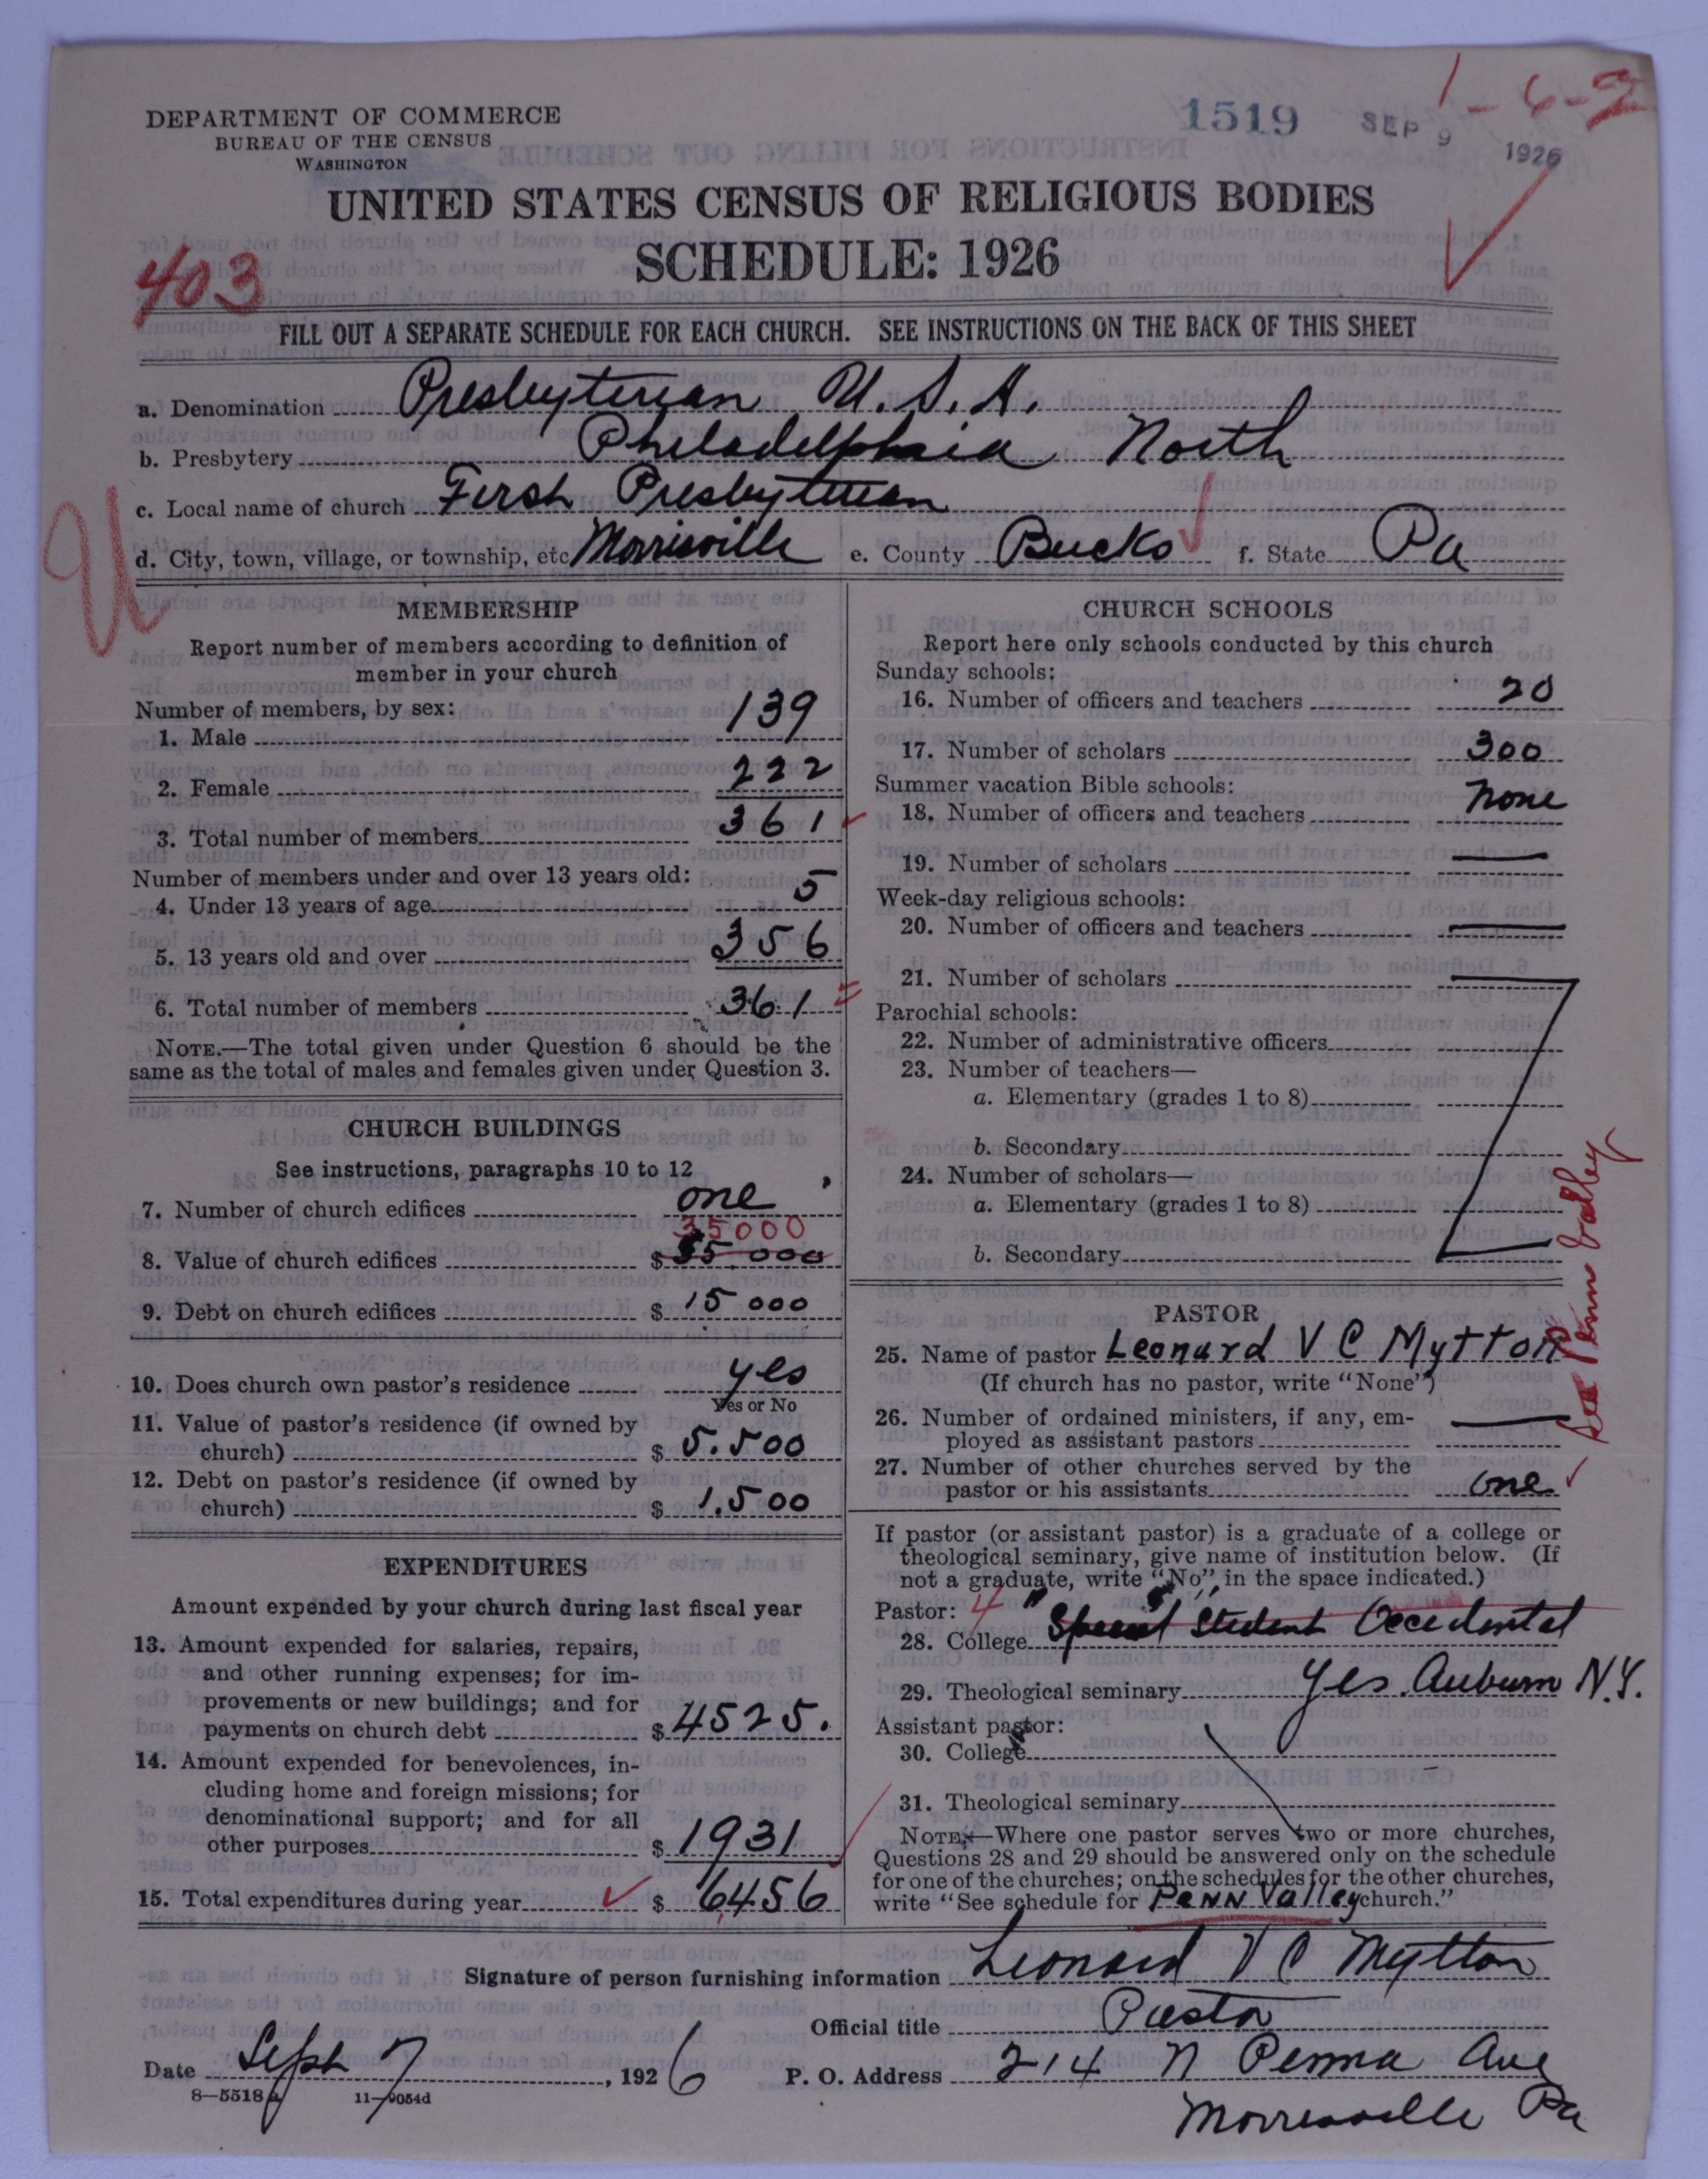 1519 SEP 9 1926 1-6-2
DEPARTMENT OF COMMERCE
BUREAU OF THE CENSUS
WASHINGTON
UNITED STATES CENSUS OF RELIGIOUS BODIES
SCHEDULE: 1926
403
FILL OUT A SEPARATE SCHEDULE FOR EACH CHURCH. SEE INSTRUCTIONS ON THE BACK OF THIS SHEET
a. Denomination Presbyterian U.S.A.
b. Presbytery Philadelphia North
c. Local name of church First Presbyterian
d. City, town, village, or township, etc Morrisville e. County Bucks f. State Pa
U
MEMBERSHIP
Report number of members according to definition of
member in your church
Number of members, by sex:
1. Male 139
2. Female 222
3. Total number of members 361
Number of members under and over 13 years old:
4. Under 13 years of age 5
5. 13 years old and over 356
6. Total number of members 361
NOTE.—The total given under Question 6 should be the
same as the total of males and females given under Question 3.
CHURCH BUILDINGS
See instructions, paragraphs 10 to 12
7. Number of church edifices one
35000
8. Value of church edifices $ 35.000
9. Debt on church edifices $ 15000
10. Does church own pastor's residence yes
Yes or No
11. Value of pastor's residence (if owned by
church) $ 5.500
12. Debt on pastor's residence (if owned by
church) $ 1.500
EXPENDITURES
Amount expended by your church during last fiscal year
13. Amount expended for salaries, repairs,
and other running expenses; for im-
provements or new buildings; and for
payments on church debt $ 4525.
14. Amount expended for benevolences, in-
cluding home and foreign missions; for
denominational support; and for all
other purposes $ 1931
15. Total expenditures during year $ 6456
CHURCH SCHOOLS
Report here only schools conducted by this church
Sunday schools:
16. Number of officers and teachers 20
17. Number of scholars 300
Summer vacation Bible schools:
18. Number of officers and teachers none
19. Number of scholars —
Week-day religious schools:
20. Number of officers and teachers —
21. Number of scholars —
Parochial schools:
22. Number of administrative officers
23. Number of teachers—
a. Elementary (grades 1 to 8)
b. Secondary
24. Number of scholars—
a. Elementary (grades 1 to 8)
b. Secondary
PASTOR
25. Name of pastor Leonard V C Mytton
(If church has no pastor, write "None")
26. Number of ordained ministers, if any, em-
ployed as assistant pastors —
27. Number of other churches served by the
pastor or his assistants one
See Penn Valley
If pastor (or assistant pastor) is a graduate of a college or
theological seminary, give name of institution below. (If
not a graduate, write "No" in the space indicated.)
Pastor: 4
28. College "Special" Student Occidental
29. Theological seminary yes. Auburn N.Y.
Assistant pastor:
30. College
31. Theological seminary
NOTE.—Where one pastor serves two or more churches,
Questions 28 and 29 should be answered only on the schedule
for one of the churches; on the schedules for the other churches,
write "See schedule for Penn Valley church."
Signature of person furnishing information Leonard V C Mytton
Official title Pastor
Date Sept 7, 1926 P. O. Address 214 N Penna Ave
8—5518a 11—9054d
Morrisville Pa